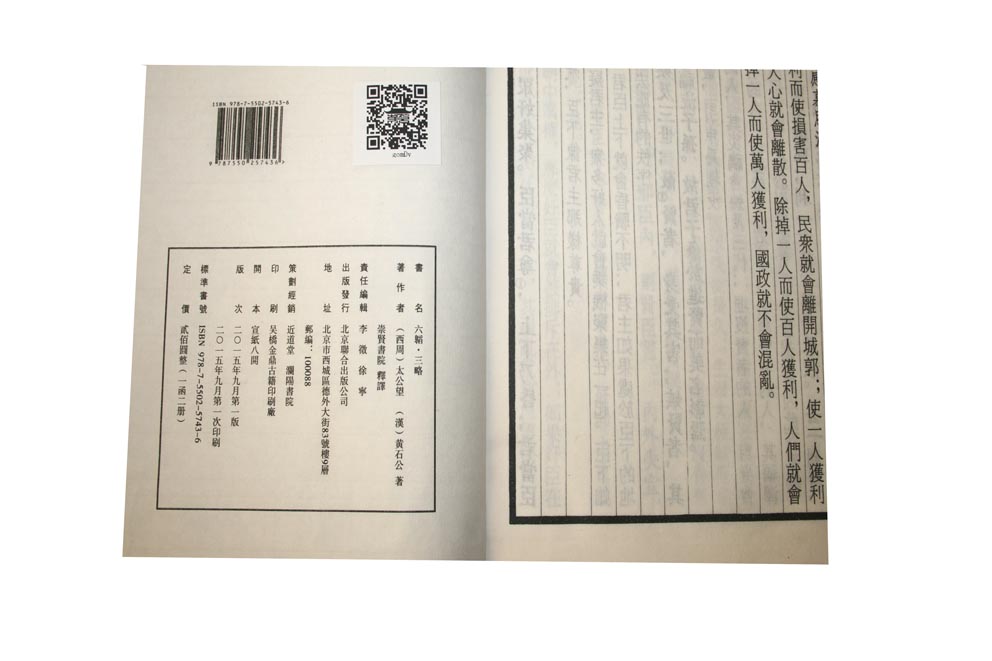 ISBN 978-7-5502-5743-6
9 787550 257436 >
書 名 六韜·三略
著 作 者 （西周）太公望 （漢）黄石公 著
崇賢書院 釋譯
責任編輯 李 徵 徐 寧
出版發行 北京聯合出版公司
地 址 北京市西城區德外大街83號樓9層
郵編：100088
策劃經銷 近道堂 瀾陽書院
印 刷 吴橋金鼎古籍印刷廠
開 本 宣紙八開
版 次 二〇一五年九月第一版
二〇一五年九月第一次印刷
標準書號 ISBN 978-7-5502-5743-6
定 價 貳佰圓整（一函二册）
利而使損害百人，民衆就會離開城郭；使一人獲利
人心就會離散。除掉一人而使百人獲利，人們就會
掉一人而使萬人獲利，國政就不會混亂。